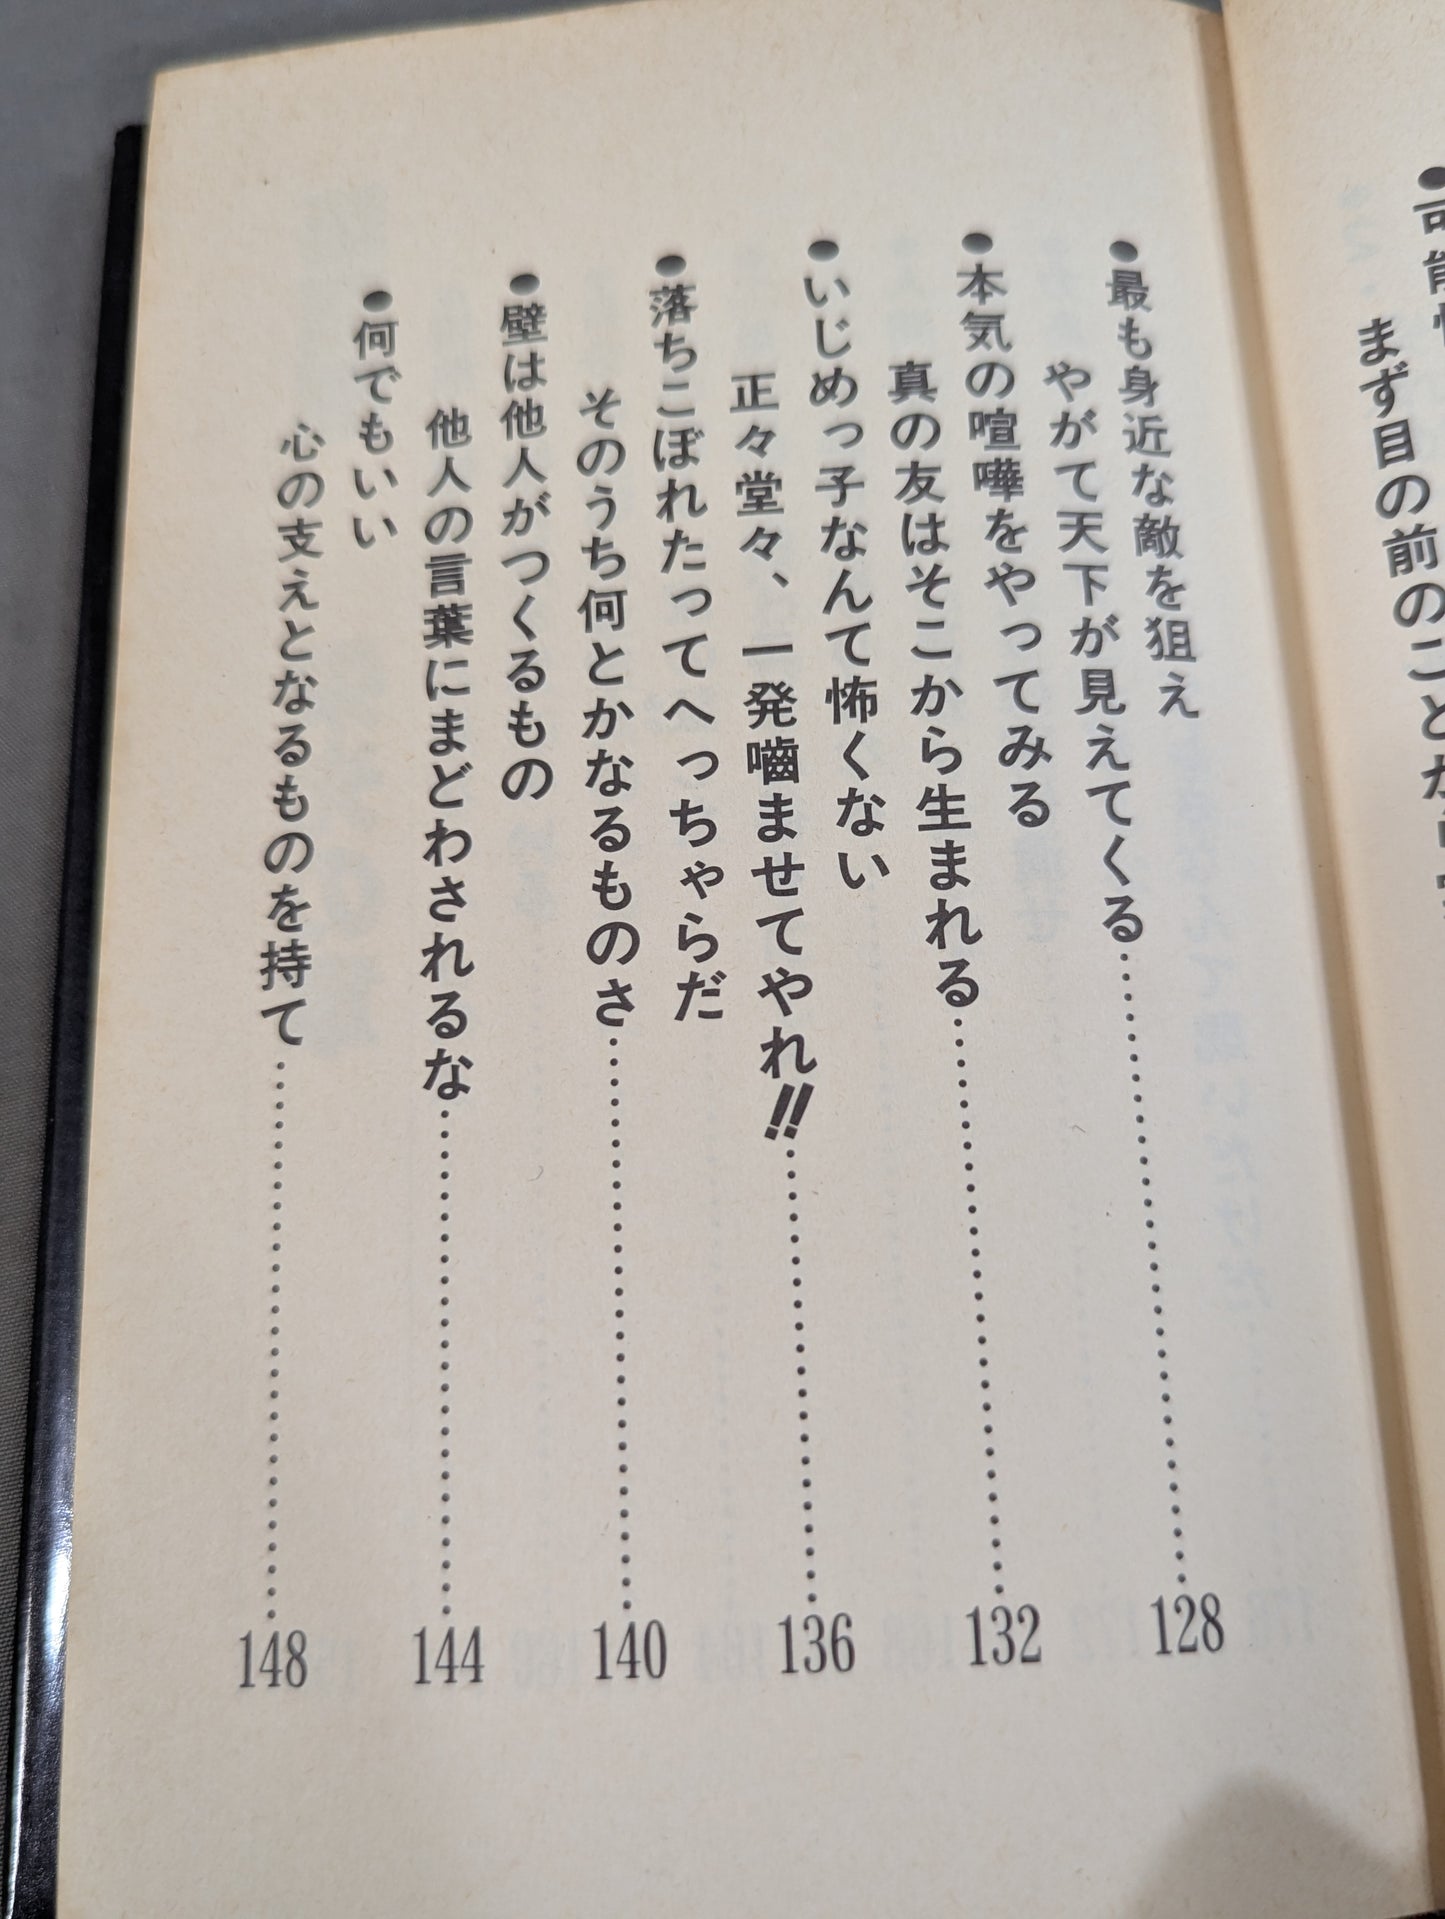 まず目の前のことから
●最も身近な敵を狙え
やがて天下が見えてくる……128
●本気の喧嘩をやってみる
真の友はそこから生まれる……132
●いじめっ子なんて怖くない
正々堂々、一発嚙ませてやれ!!……136
●落ちこぼれたってへっちゃらだ
そのうち何とかなるものさ……140
●壁は他人がつくるもの
他人の言葉にまどわされるな……144
●何でもいい
心の支えとなるものを持て……148